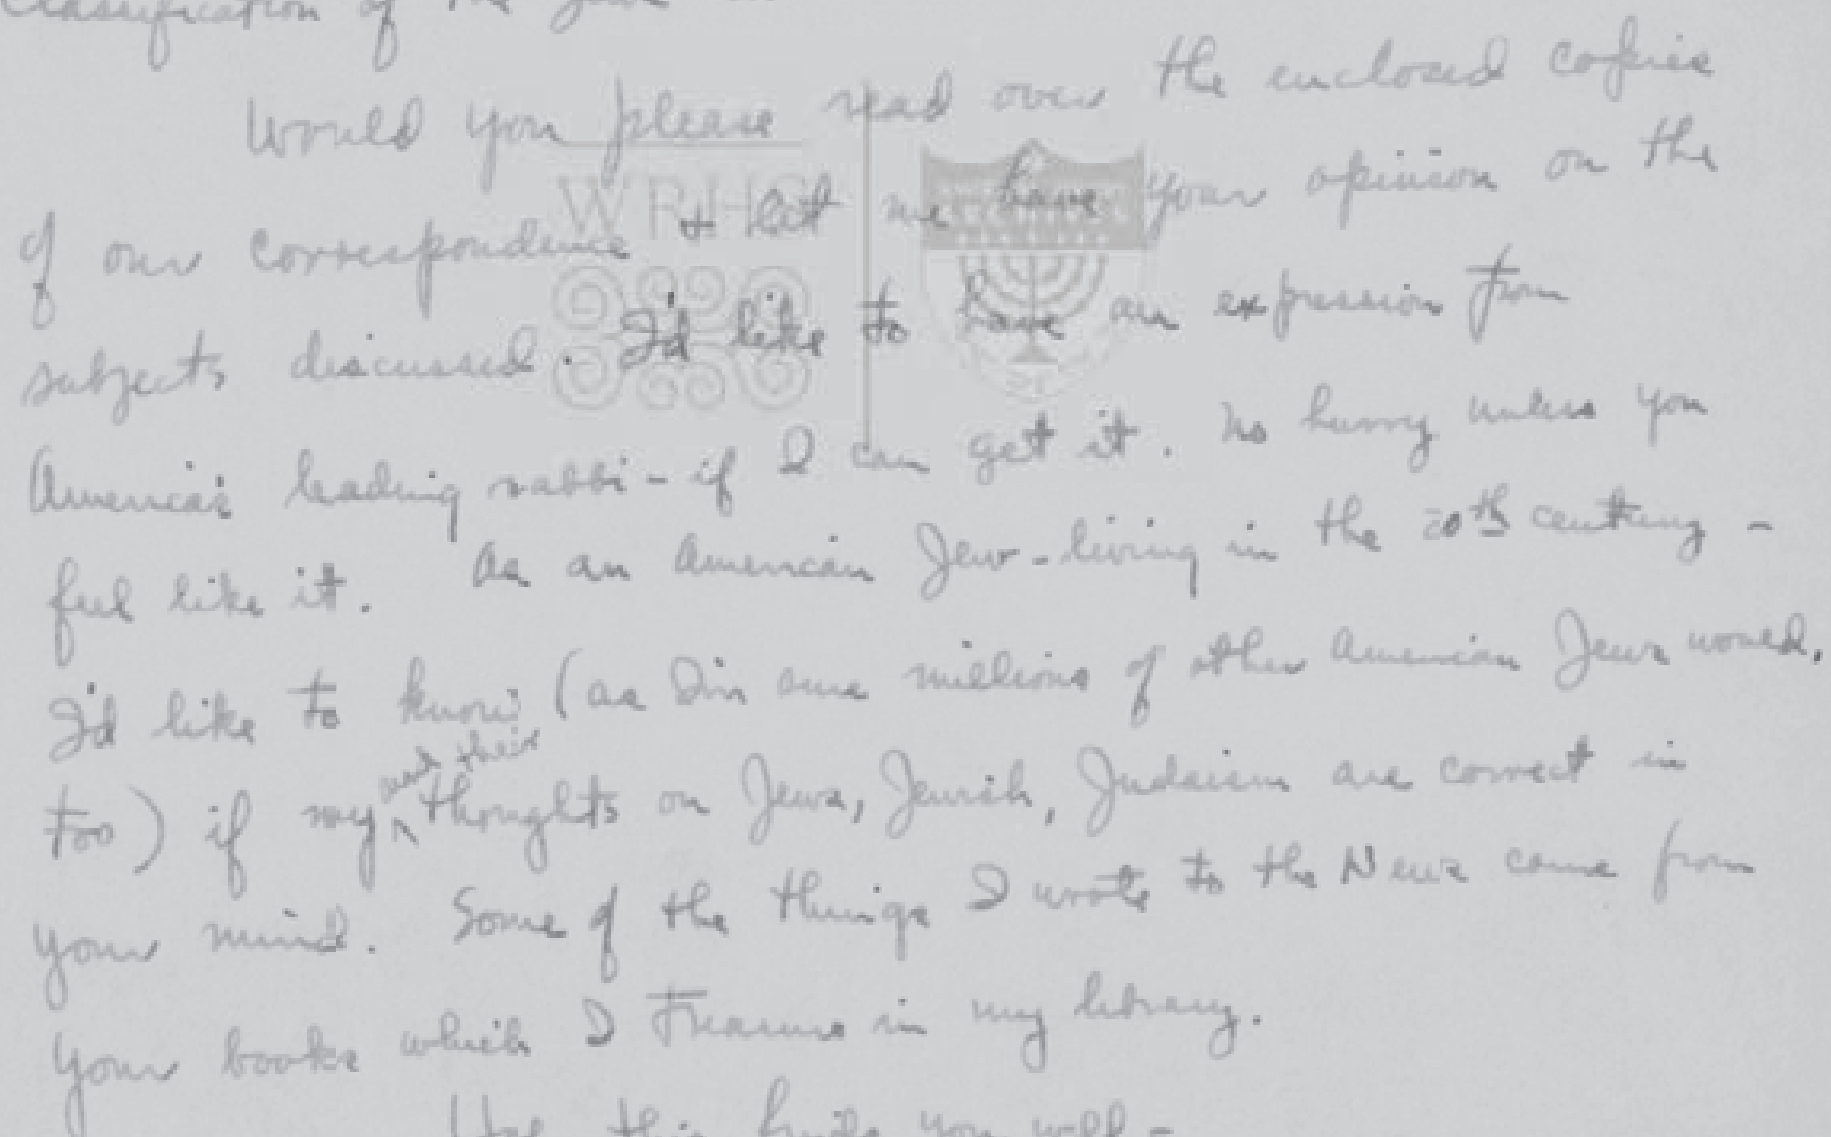 Classification of the Jews
Would you please read over the enclosed copies
of our correspondence + let me have your opinion on the
subjects discussed. I'd like to have an expression from
America's leading rabbi - if I can get it. No hurry unless you
feel like it. As an American Jew - living in the 20th century -
I'd like to know (as I'm sure millions of other American Jews would,
too) if my and their thoughts on Jews, Jewish, Judaism are correct in
your mind. Some of the things I wrote to the News came from
your books which I treasure in my library.
this finds you well -
WRHS